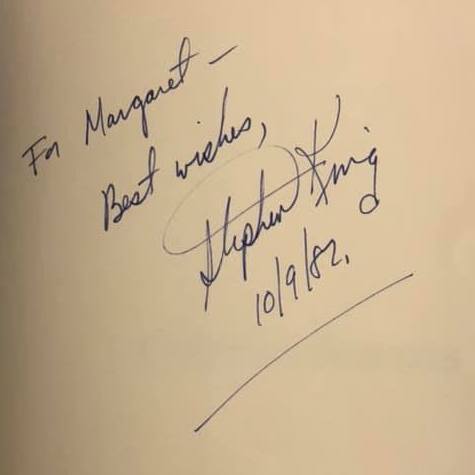 For Margaret –
Best wishes,
Stephen King
10/9/82.